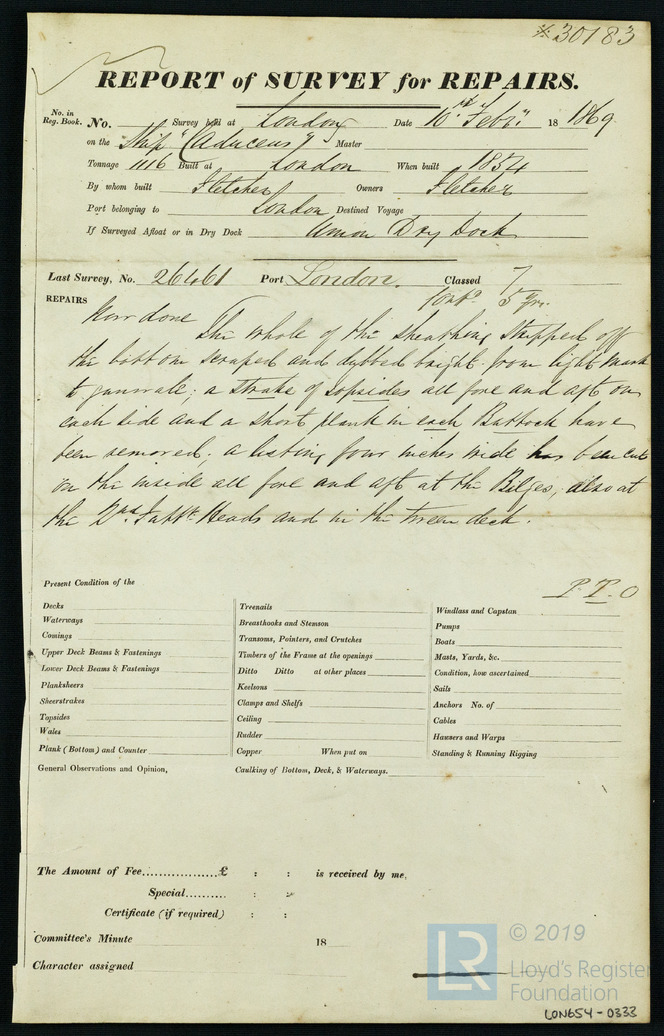 * 30183
REPORT of SURVEY for REPAIRS.
No. in Reg. Book. No. Survey held at London Date 10th of Febry. 1869
on the Ship "Caduceus" Master
Tonnage 1116 Built at London When built 1854
By whom built Fletcher Owners Fletcher
Port belonging to London Destined Voyage
If Surveyed Afloat or in Dry Dock Union Dry Dock
Last Survey, No. 26461 Port London. Classed 7
Contd. 5 Yrs.
REPAIRS Now done The whole of the sheathing stripped off
the bottom scraped and dubbed bright from light mark
to gunwale; a strake of topsides all fore and aft on
each side and a short plank in each Buttock have
been removed; a listing four inches wide has been cut
on the inside all fore and aft at the Bilges, also at
the Futtk. Heads and in the tween deck.
P.T.O
Present Condition of the
Decks
Waterways
Comings
Upper Deck Beams & Fastenings
Lower Deck Beams & Fastenings
Planksheers
Sheerstrakes
Topsides
Wales
Plank (Bottom) and Counter
General Observations and Opinion,
Treenails
Breasthooks and Stemson
Transoms, Pointers, and Crutches
Timbers of the Frame at the openings
Ditto Ditto at other places
Keelsons
Clamps and Shelfs
Ceiling
Rudder
Copper When put on
Caulking of Bottom, Deck, & Waterways.
Windlass and Capstan
Pumps
Boats
Masts, Yards, &c.
Condition, how ascertained
Sails
Anchors No. of
Cables
Hawsers and Warps
Standing & Running Rigging
The Amount of Fee..................£ : : is received by me,
Special.......... : :
Certificate (if required) : :
Committee's Minute 18
Character assigned
LR
© 2019
Lloyd's Register
Foundation
LON654-0333